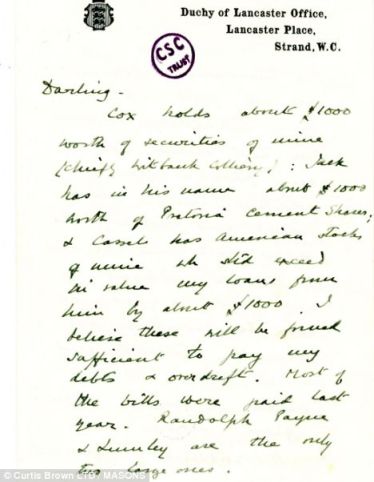 Duchy of Lancaster Office,
Lancaster Place,
Strand, W.C.
CSC
TRUST
Darling -
Cox holds about £1000
worth of securities of mine
(chiefly Witbank Colliery) : Jack
has in his name about £1000
worth of Pretoria Cement Shares;
& Cassel has American stocks
of mine wh shd exceed
in value my loans from
him by about £1000. I
believe these will be found
sufficient to pay my
debts & overdraft. Most of
the bills were paid last
year. Randolph Payne
& Lumley are the only
two large ones.
© Curtis Brown LTD / MASONS